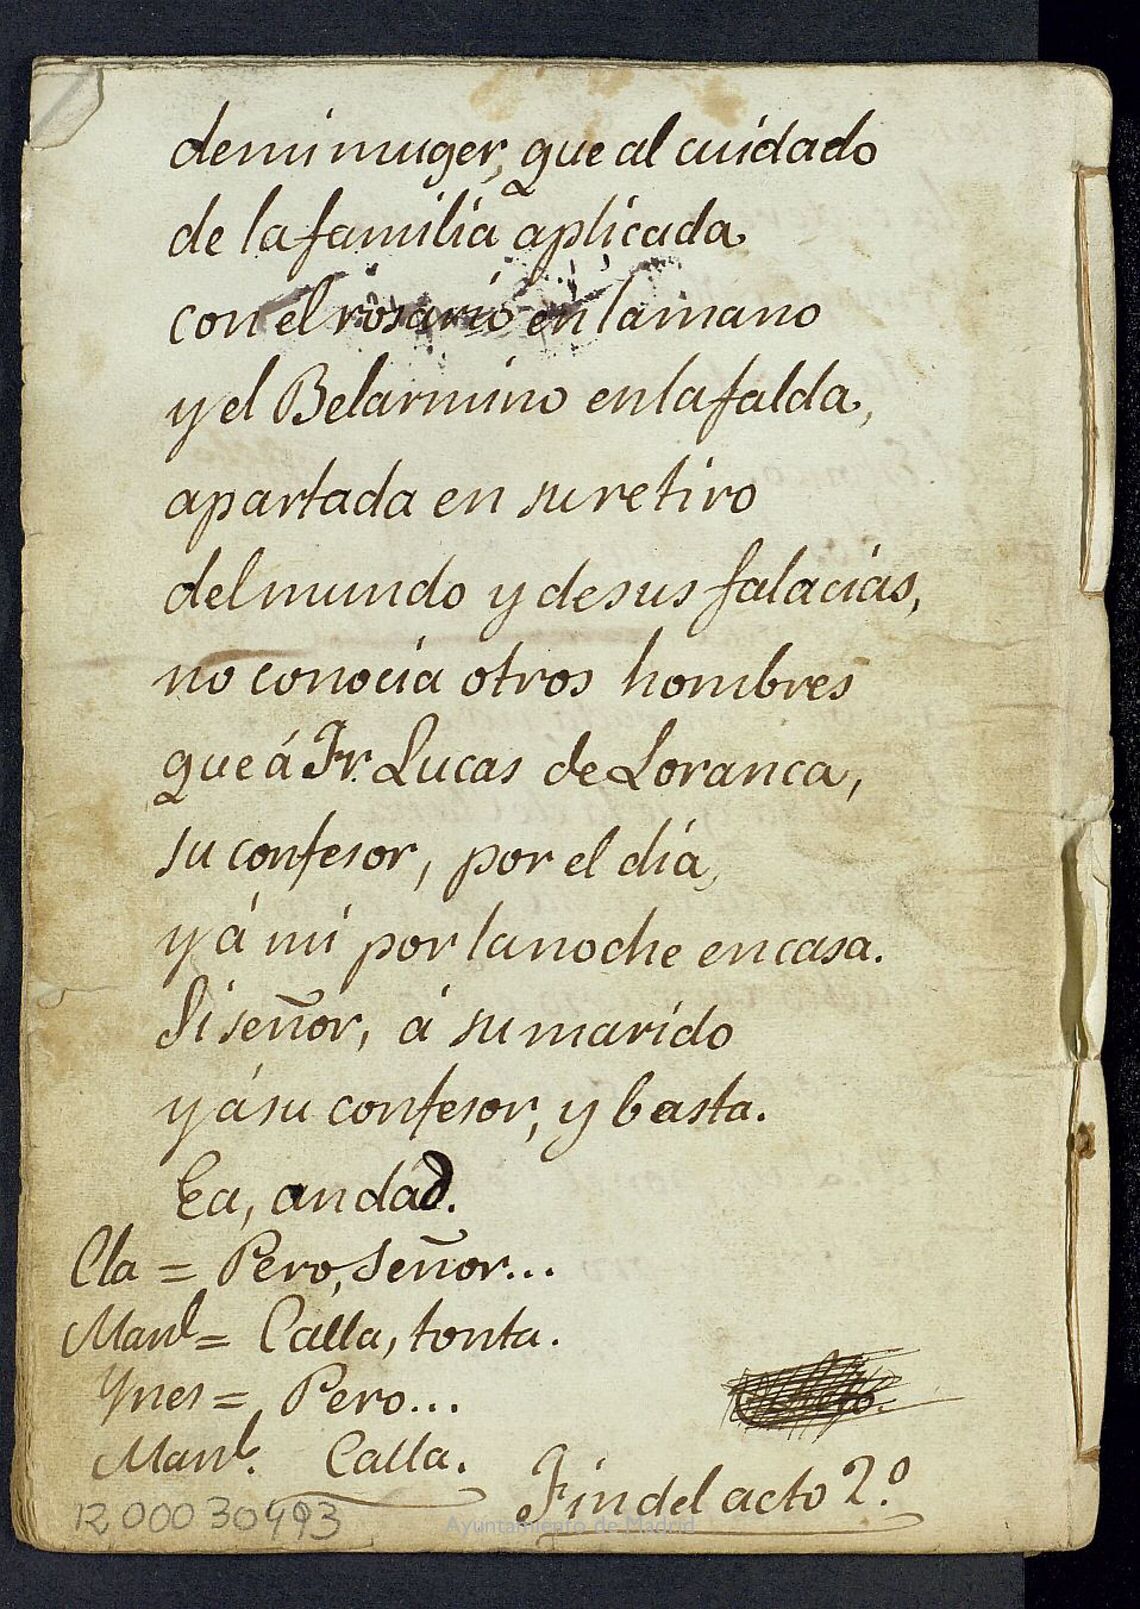 de mi muger, que al cuidado
de la familia aplicada
con el rosario en la mano
y el Belarmino en la falda,
apartada en su retiro
del mundo y de sus falacias,
no conocia otros hombres
que á Fr. Lucas de Loranca,
su confesor, por el dia,
y á mi por la noche en casa.
Si señor, á su marido
y á su confesor, y basta.
Ea, andad.
Cla = Pero, señor...
Manl = Calla, tonta.
Ynes = Pero...
Manl. Calla.
Fin del acto 2.º
1200030493
Ayuntamiento de Madrid